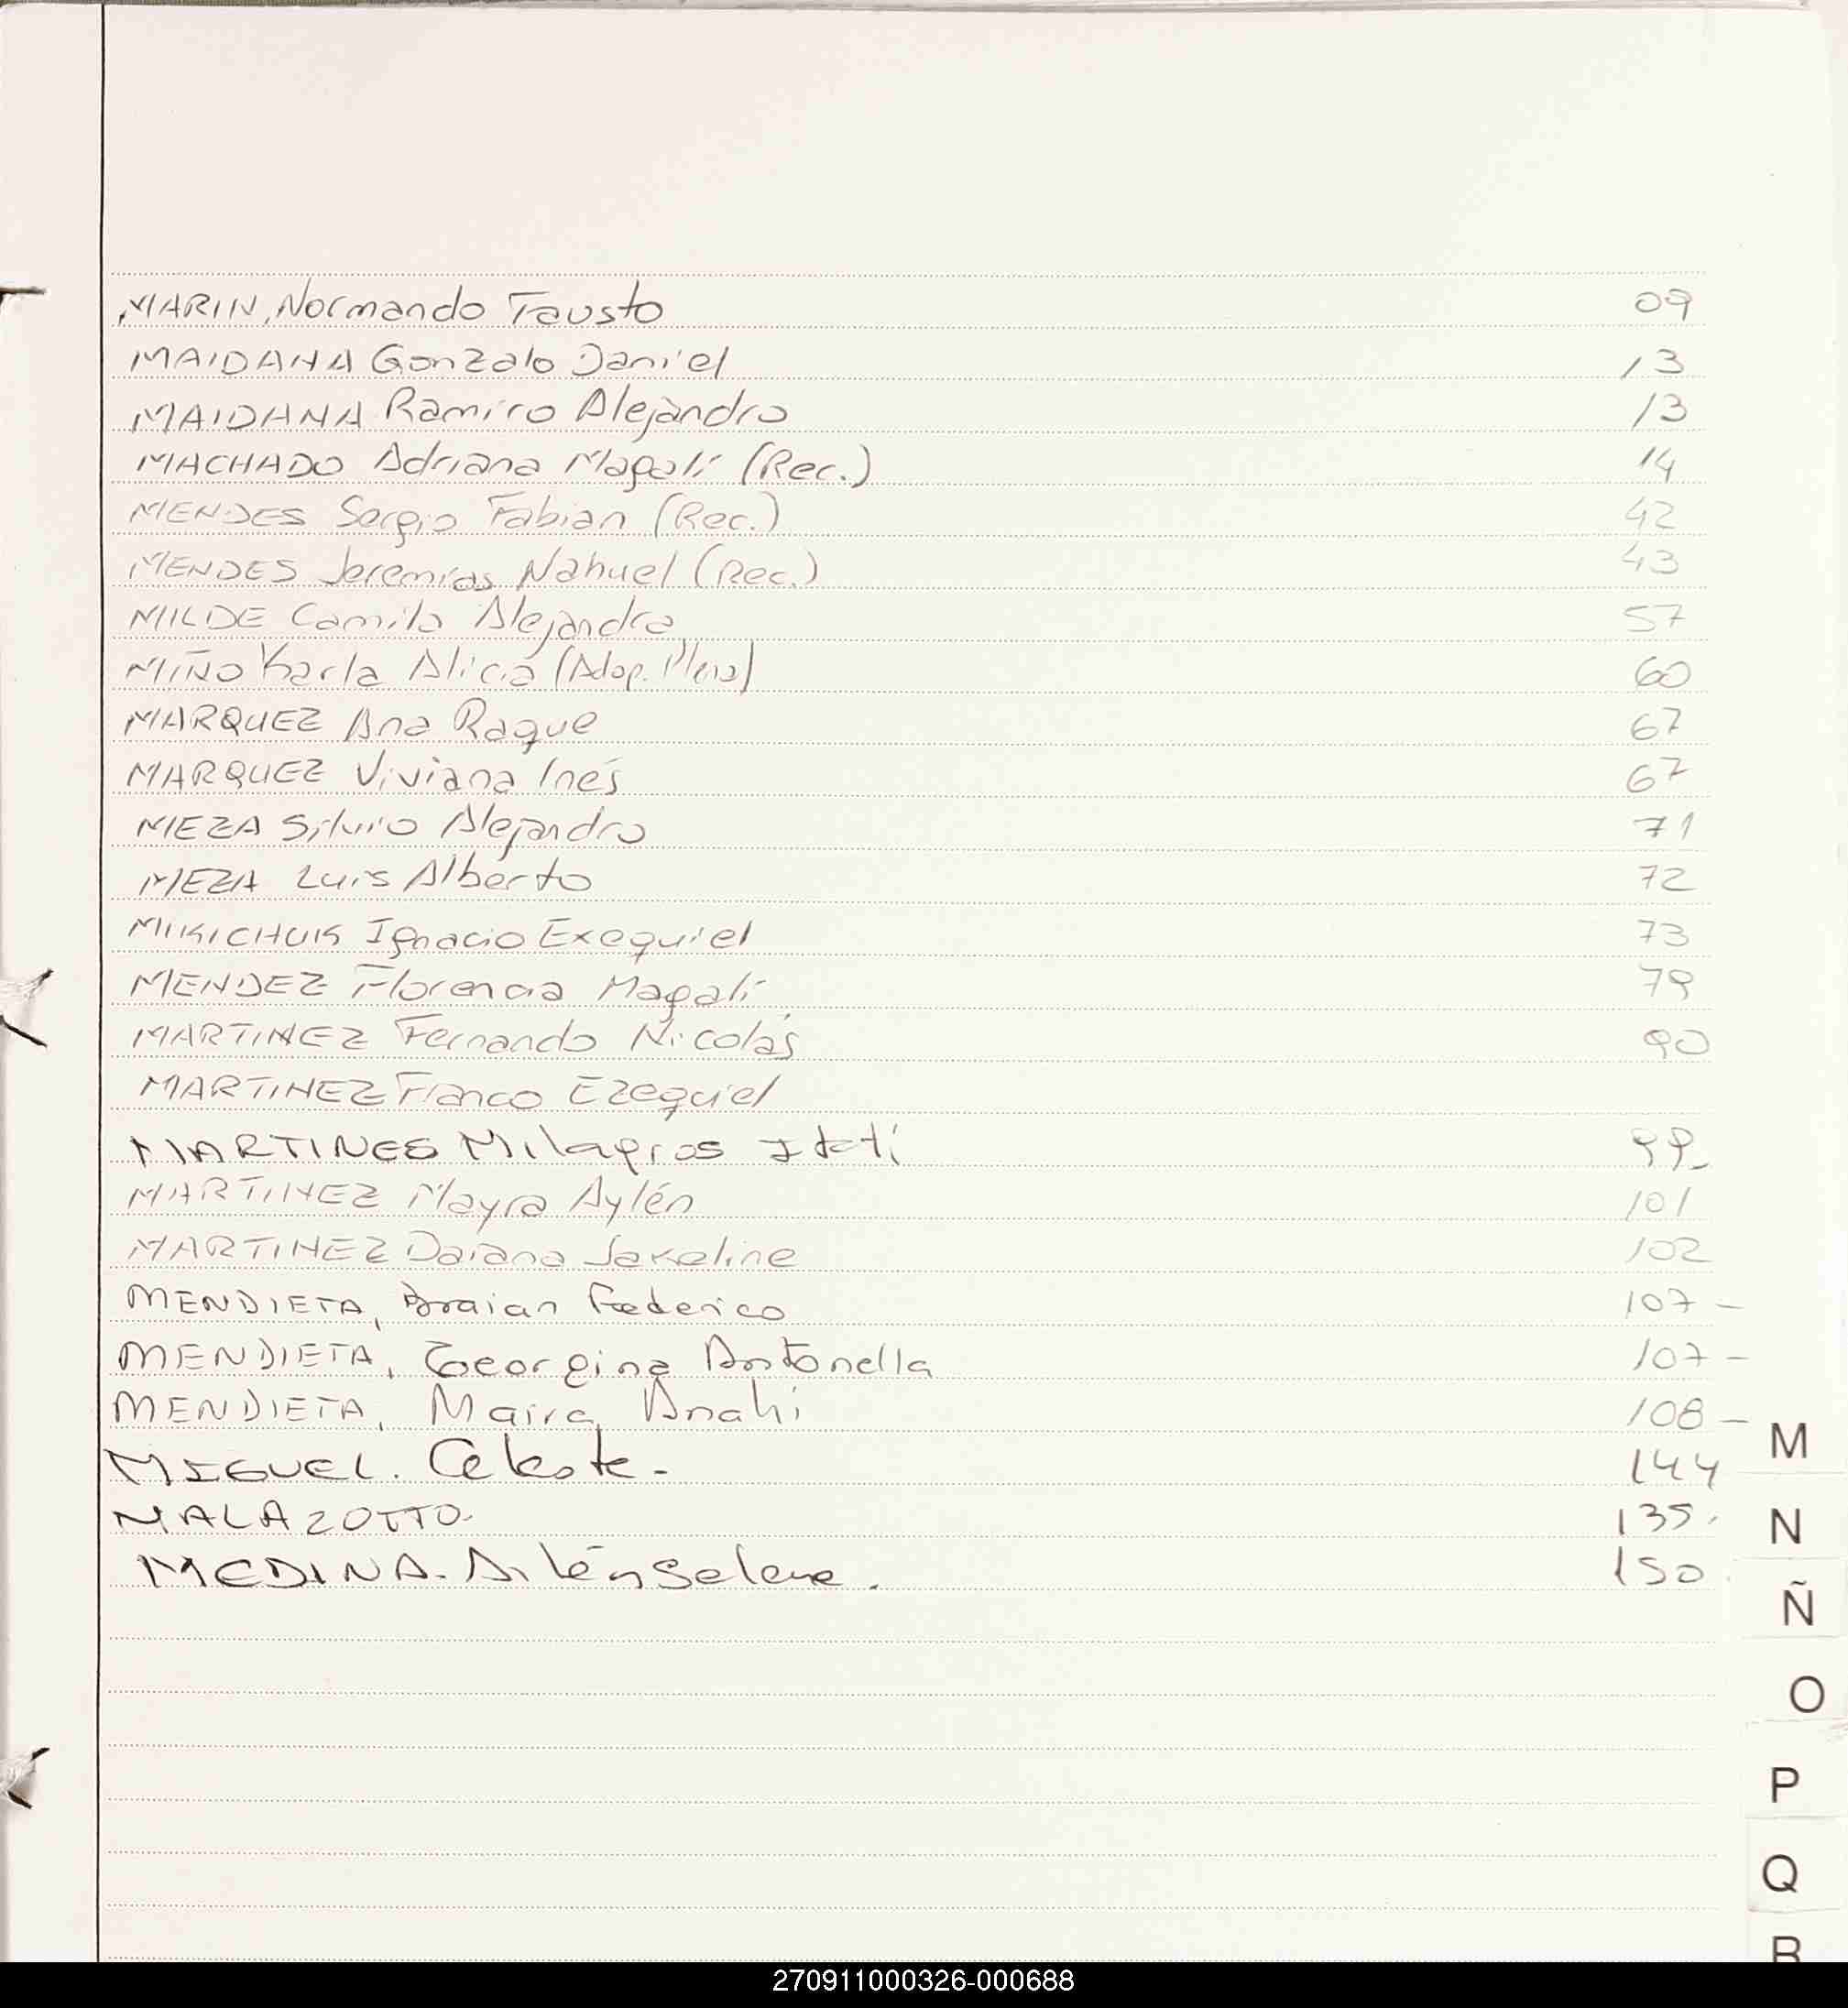 MARIN, Normando Fausto 09
MAIDANA Gonzalo Daniel 13
MAIDANA Ramiro Alejandro 13
MACHADO Adriana Magali (Rec.) 14
MENDES Sergio Fabian (Rec.) 42
MENDES Jeremias Nahuel (Rec.) 43
MILDE Camila Alejandra 57
MIÑO Karla Alicia (Adop. Plena) 60
MARQUEZ Ana Raque 67
MARQUEZ Viviana Inés 67
MEZA Silvio Alejandro 71
MEZA Luis Alberto 72
MIKICHUK Ignacio Exequiel 73
MENDEZ Florencia Magali 79
MARTINEZ Fernando Nicolás 90
MARTINEZ Franco Ezequiel
MARTINES Milagros Itatí 99-
MARTINEZ Mayra Aylén 101
MARTINEZ Daiana Jakeline 102
MENDIETA, Braian Federico 107 -
MENDIETA, Georgina Antonella 107 -
MENDIETA, Maira Anahi 108 -
MIGUEL. Celeste. - 144
MALAZOTTO. 135.
MEDINA. Ailén Selene. 150
M
N
Ñ
O
P
Q
R
270911000326-000688